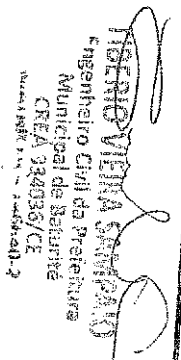 ROGÉRIO VIEIRA SAMPAIO
Engenheiro Civil da Prefeitura
Municipal de Baturité
CREA 334036/CE